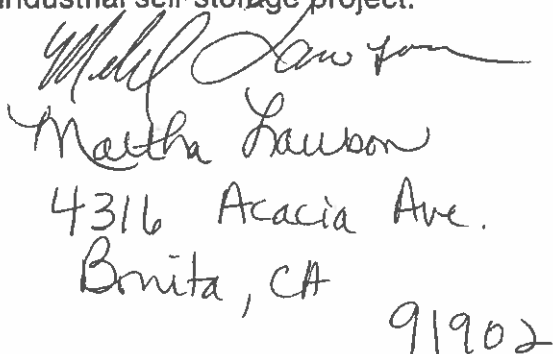 industrial self-storage project.
Lawson
Martha Lawson
4316 Acacia Ave.
Bonita, CA
91902